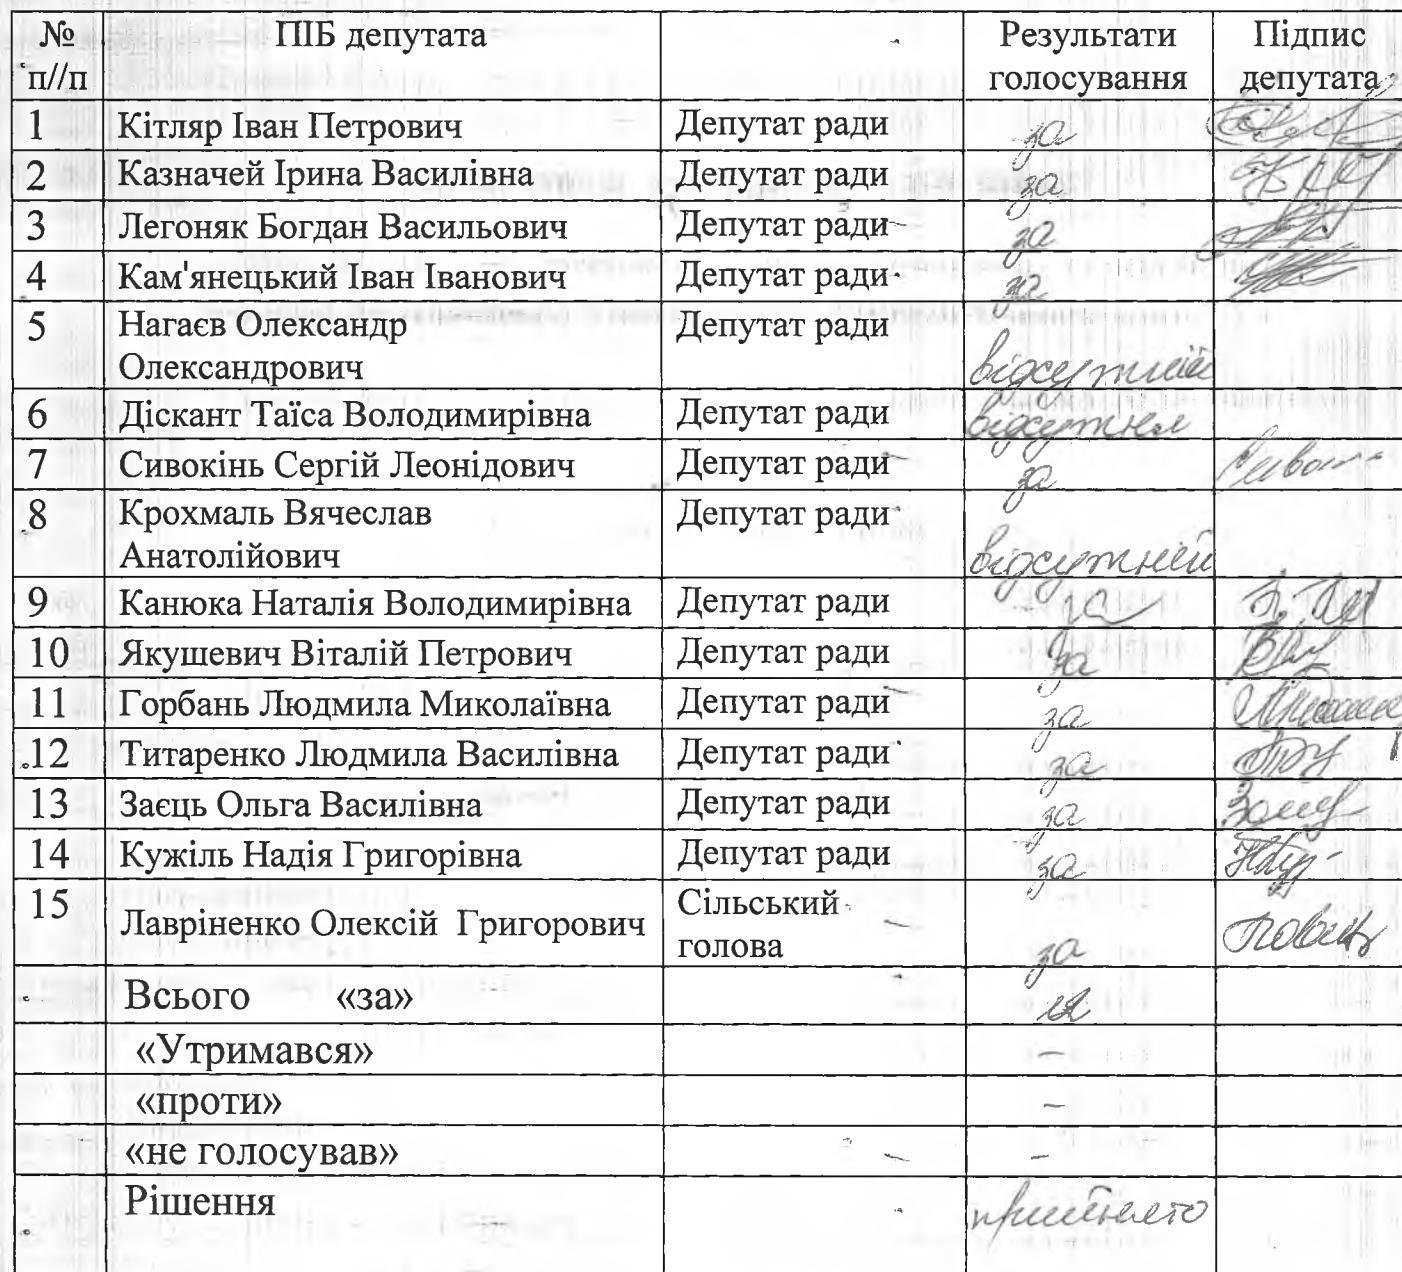 № ПІБ депутата Результати Підпис
п//п голосування депутата
1 Кітляр Іван Петрович Депутат ради за
2 Казначей Ірина Василівна Депутат ради за
3 Легоняк Богдан Васильович Депутат ради за
4 Кам'янецький Іван Іванович Депутат ради за
5 Нагаєв Олександр Депутат ради
Олександрович відсутній
6 Діскант Таїса Володимирівна Депутат ради відсутня
7 Сивокінь Сергій Леонідович Депутат ради за
8 Крохмаль Вячеслав Депутат ради
Анатолійович відсутній
9 Канюка Наталія Володимирівна Депутат ради за
10 Якушевич Віталій Петрович Депутат ради За
11 Горбань Людмила Миколаївна Депутат ради за
12 Титаренко Людмила Василівна Депутат ради за
13 Заєць Ольга Василівна Депутат ради за
14 Кужіль Надія Григорівна Депутат ради за
15 Лавріненко Олексій Григорович Сільський
голова за
Всього «за» 12
«Утримався» –
«проти» –
«не голосував» –
Рішення прийнято